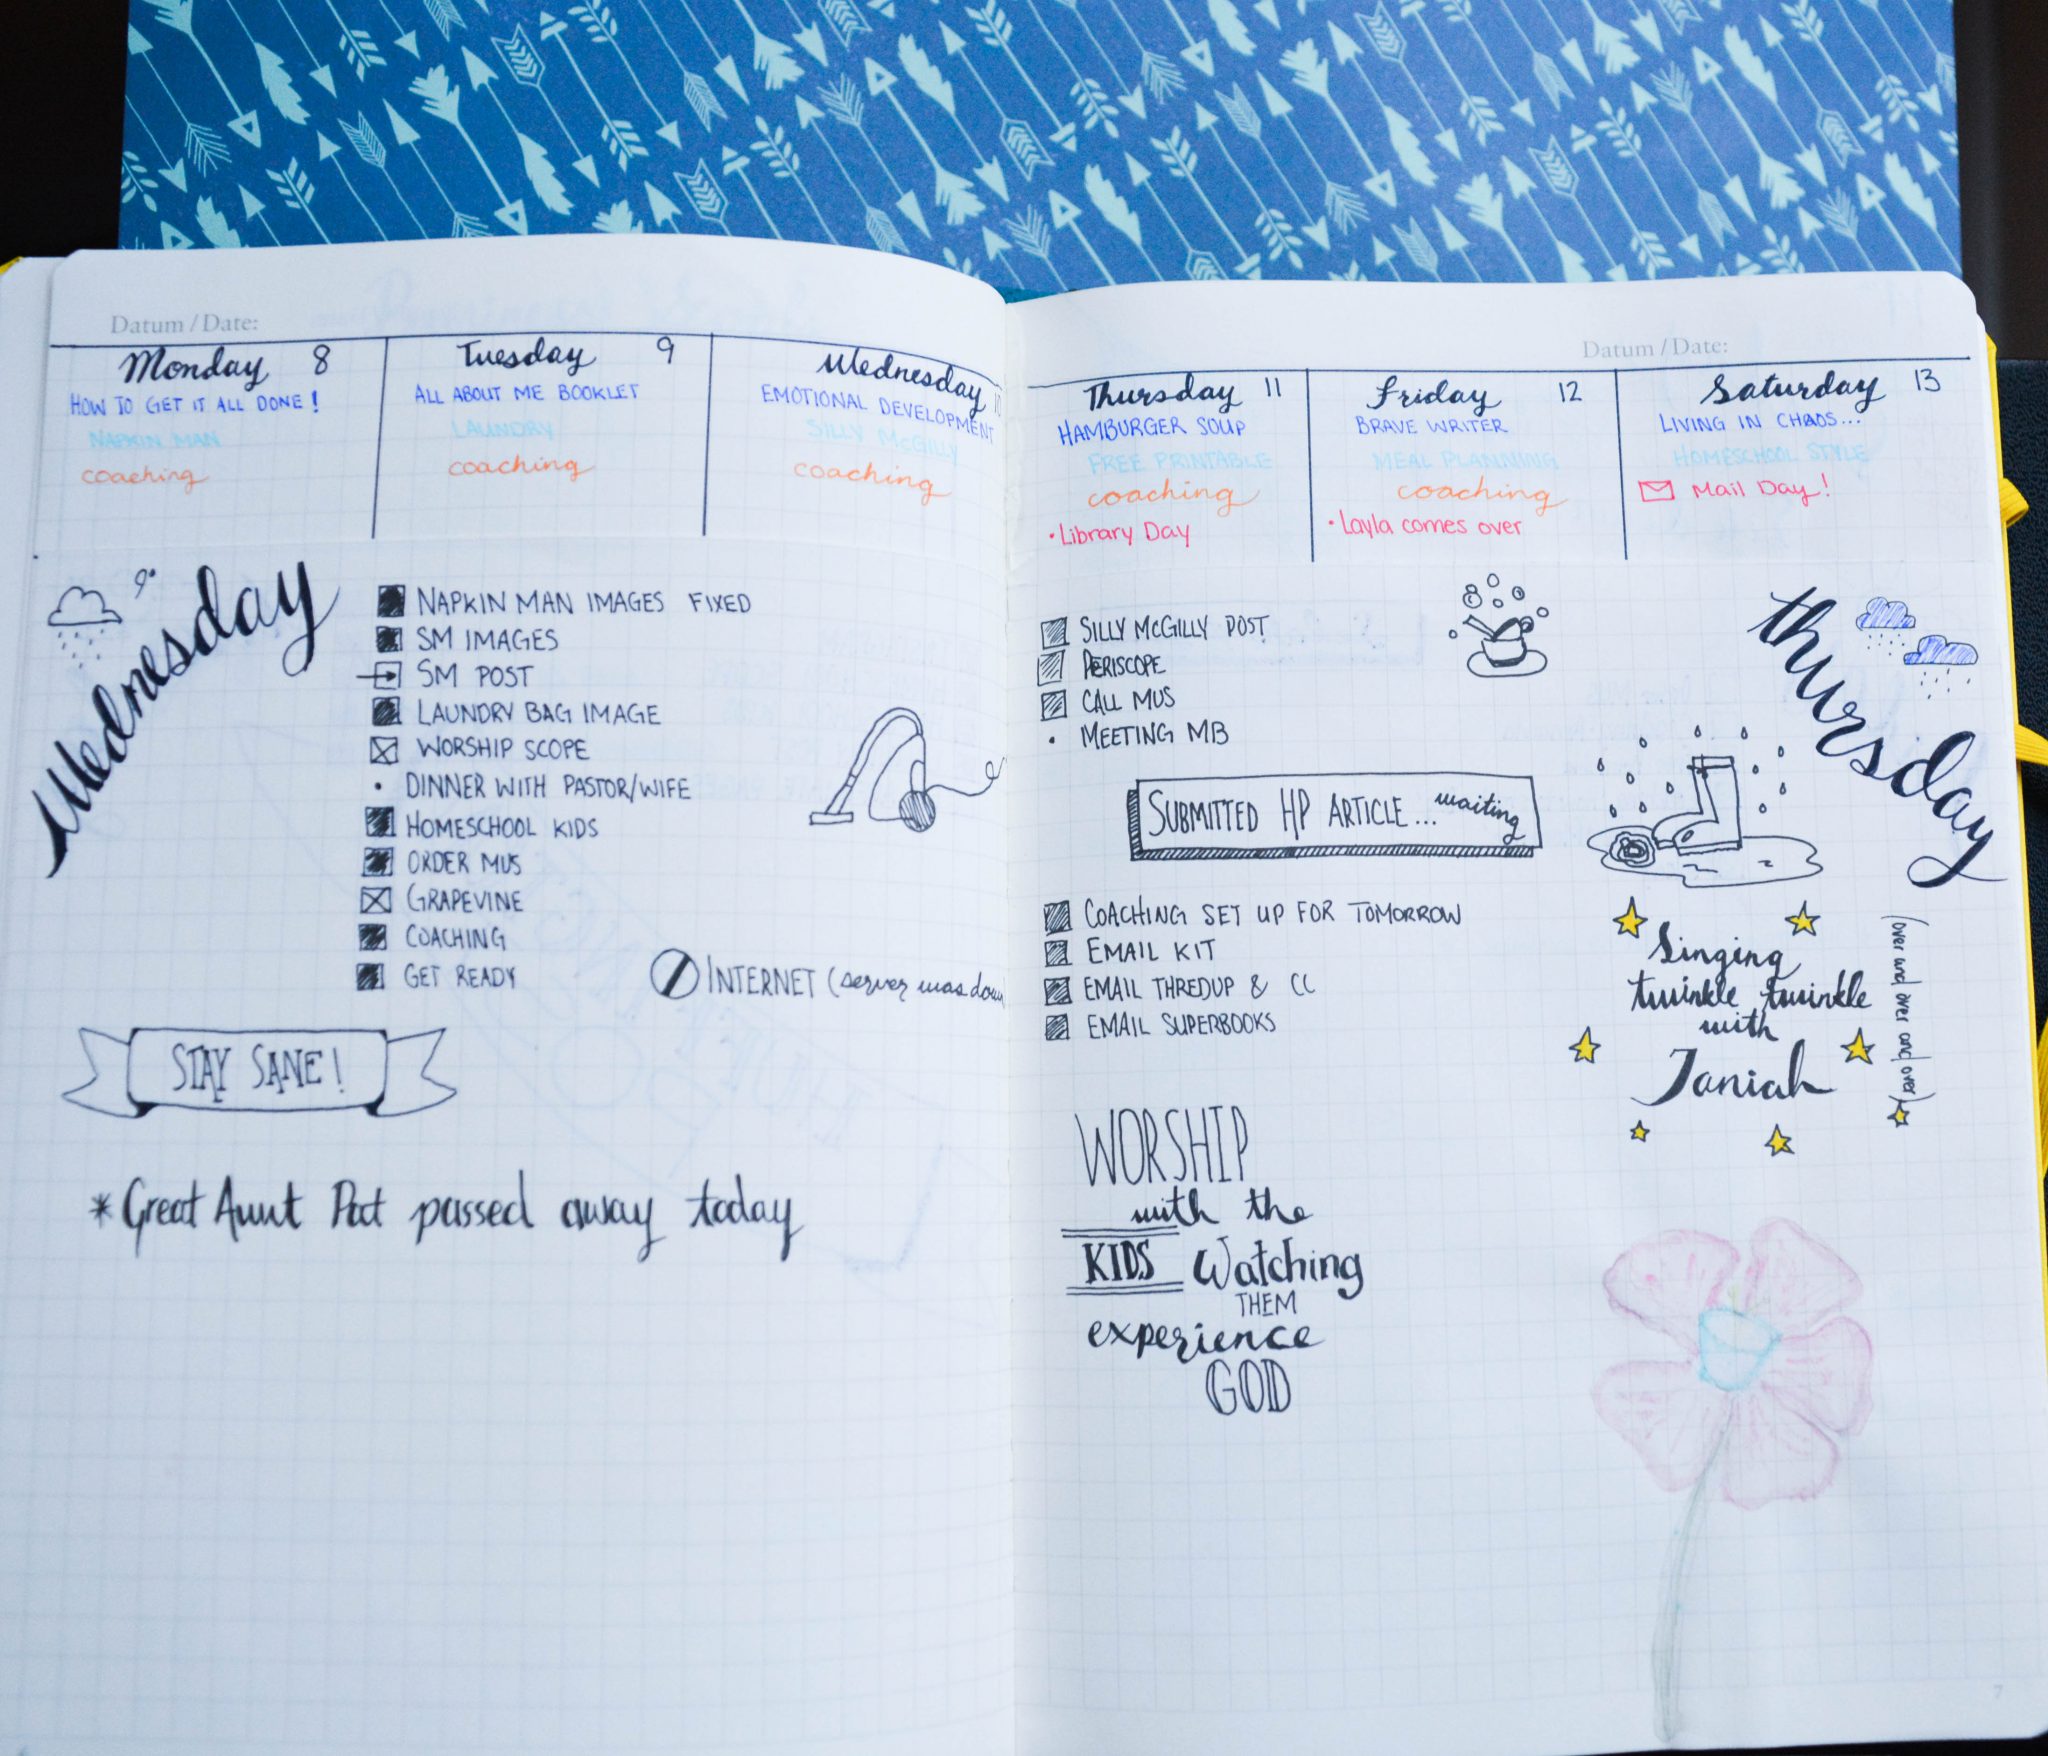 Datum / Date:
Monday 8
HOW TO GET IT ALL DONE!
NAPKIN MAN
coaching
Tuesday 9
ALL ABOUT ME BOOKLET
LAUNDRY
coaching
Wednesday 10
EMOTIONAL DEVELOPMENT
SILLY McGILLY
coaching
Wednesday
9°
NAPKIN MAN IMAGES FIXED
SM IMAGES
SM POST
LAUNDRY BAG IMAGE
WORSHIP SCOPE
• DINNER WITH PASTOR/WIFE
HOMESCHOOL KIDS
ORDER MUS
GRAPEVINE
COACHING
GET READY
INTERNET (server was down)
STAY SANE!
* Great Aunt Pat passed away today
Datum / Date:
Thursday 11
HAMBURGER SOUP
FREE PRINTABLE
coaching
• Library Day
Friday 12
BRAVE WRITER
MEAL PLANNING
coaching
• Layla comes over
Saturday 13
LIVING IN CHAOS...
HOMESCHOOL STYLE
Mail Day!
Thursday
SILLY McGILLY POST
PERISCOPE
CALL MUS
• MEETING MB
SUBMITTED HP ARTICLE... waiting
COACHING SET UP FOR TOMORROW
EMAIL KIT
EMAIL THREDUP & CC
EMAIL SUPERBOOKS
Singing
twinkle twinkle
with
Janiah
(over and over and over)
WORSHIP
with the
KIDS Watching
THEM
experience
GOD
7